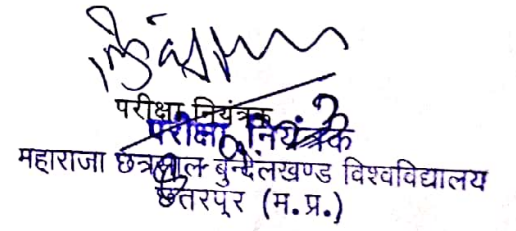 परीक्षा नियंत्रक
परीक्षा नियंत्रक
महाराजा छत्रसाल बुन्देलखण्ड विश्वविद्यालय
छतरपुर (म.प्र.)